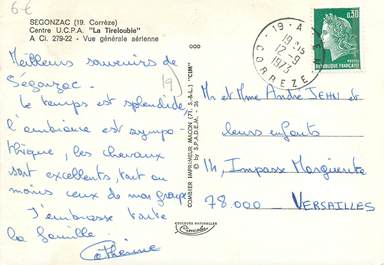 6€
SEGONZAC (19. Corrèze)
Centre U.C.P.A. "La Tirelouble"
A Ci. 279-22 - Vue générale aérienne
Meilleurs souvenirs de
Ségonzac.
Le temps est splendide
l'ambiance est sympa-
thique, les chevaux
sont excellents, tout au
moins ceux de mon groupe
J'embrasse toute
la famille.
Catherine
19
COMBIER IMPRIMEUR MACON (71. S.-&-L.) "CIM"
© by S.P.A.D.E.M. - 26
COULEURS NATURELLES
19 - A
19 H 15
12 - 9
1973
CORREZE
0,30
REPUBLIQUE FRANÇAISE
POSTES
Mr et Mme André JEHN et
leurs enfants
14, Impasse Marguerite
78.000 VERSAILLES